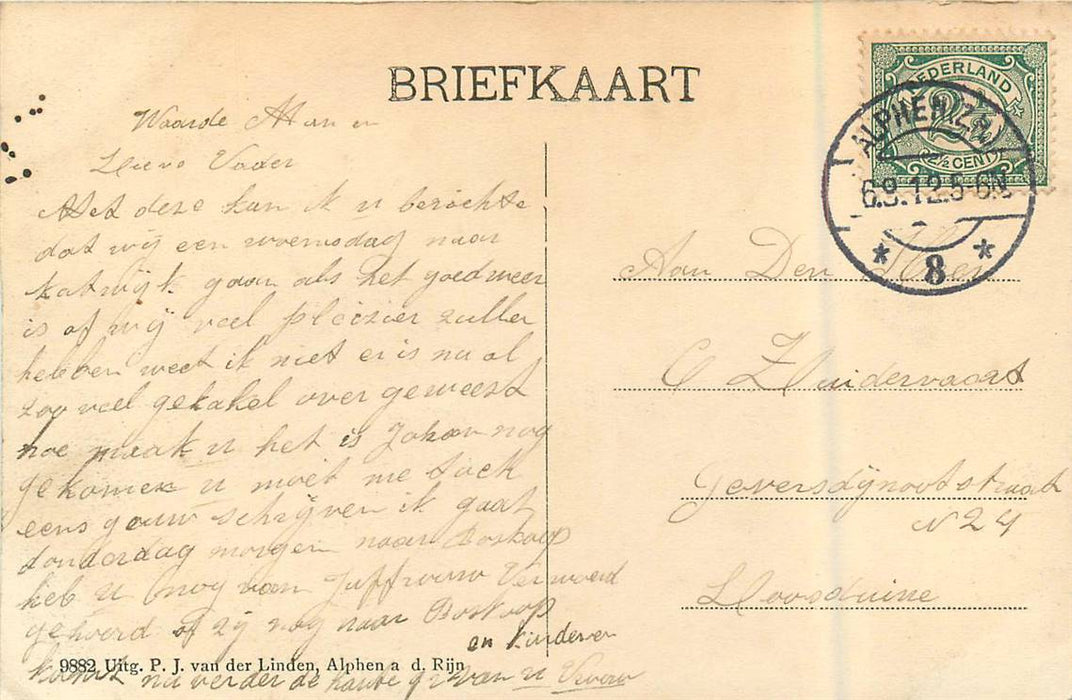 BRIEFKAART
NEDERLAND
2½
2½ CENT
ALPHEN (Z.H)
6.9.12.5-6N
* 8 *
Waarde Man en
Lieve Vader
Met deze kan ik u berichte
dat wij een woensdag naar
katwijk gaan als het goed weer
is of wij veel pleizier zulle
hebben weet ik niet er is nu al
zoo veel gekakel over geweest
hoe maak u het is Johan nog
gekomen u moet me toch
eens gouw schrijven ik gaat
donderdag morgen naar Boskoop
heb u nog van Juffrouw Vermoerd
gehoord of zij nog naar Boskoop
komt nu verder de van u Vrouw
en kinderen
Aan Den Heer
C Zuidervaart
Geversdijnootstraat
N 24
Loosduine
9882 Uitg. P. J. van der Linden, Alphen a d. Rijn